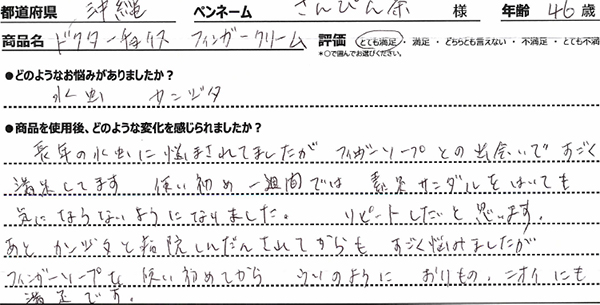 都道府県 沖縄 ペンネーム さんぴん茶 様 年齢 46歳
商品名 ドクターチョイス フィンガークリーム 評価 とても満足・満足・どちらとも言えない・不満足・とても不満
*○で囲んでお選びください。
●どのようなお悩みがありましたか?
水虫 カンジタ
●商品を使用後、どのような変化を感じられましたか?
長年の水虫に悩まされてましたが フィンガーソープとの出会いですごく
満足してます 使い初め一週間では 素足サンダルをはいても
気にならないようになりました。 リピートしたいと思います。
あと カンジタと病院しんだんされてからも すごく悩みましたが
フィンガーソープを 使い初めてから うそのように おりもの、ニオイにも
満足です。